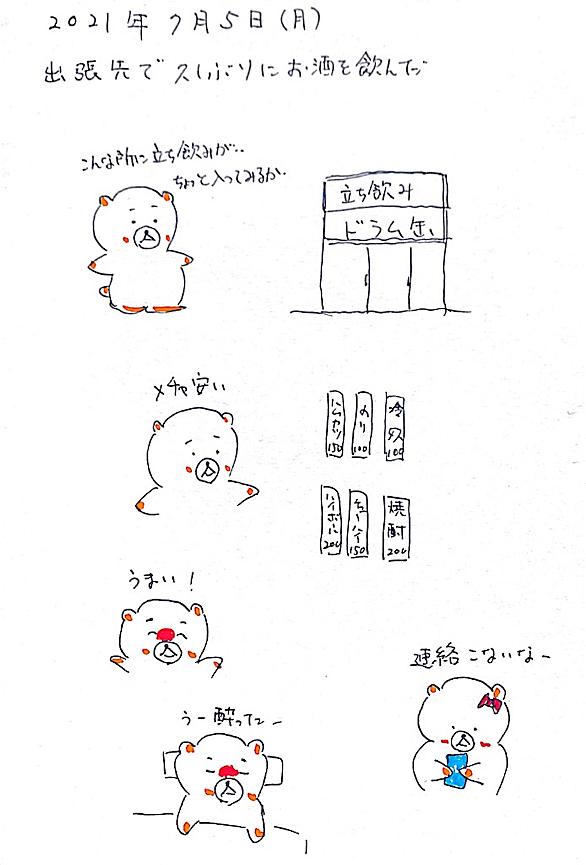 2021年7月5日(月)
出張先で久しぶりにお酒を飲んだ
こんな所に立ち飲みが..
ちょっと入ってみるか.
立ち飲み
ドラム缶
メチャ安い
ハムカツ150
のり100
冷奴100
ハイボール200
チューハイ150
焼酎200
うまい!
連絡こないなー
うー酔ったー